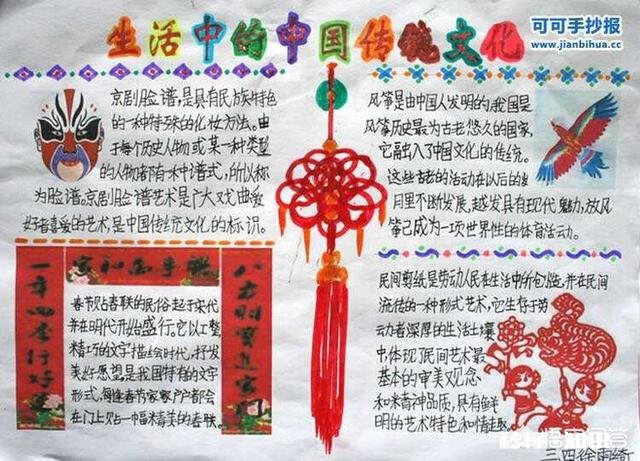 生活中的中国传统文化
可可手抄报
www.jianbihua.cc
京剧脸谱,是具有民族特色
的一种特殊的化妆方法。由
于每个历史人物或某一种类型
的人物都有一种谱式,所以称
为脸谱。京剧脸谱艺术是广大戏曲爱
好者喜爱的艺术,是中国传统文化的标识。
风筝是由中国人发明的,我国是
风筝历史最为古老悠久的国家,
它融入了中国文化的传统。
这些古老的活动在以后的岁
月里不断发展,越发具有现代魅力,放风
筝已成为一项世界性的体育活动。
一年四季行好运
八方财宝进家门
春节贴春联的民俗起于宋代
并在明代开始盛行。它以工整
精巧的文字描绘时代,抒发
美好愿望,是我国特有的文字
形式,每逢春节家家户户都会
在门上贴一幅精美的春联。
民间剪纸是劳动人民在生活中所创造,并在民间
流传的一种形式艺术,它生存于劳
动者深厚的生活土壤
中体现了民间艺术最
基本的审美观念
和精神品质,具有鲜
明的艺术特色和情趣。
三四徐雨